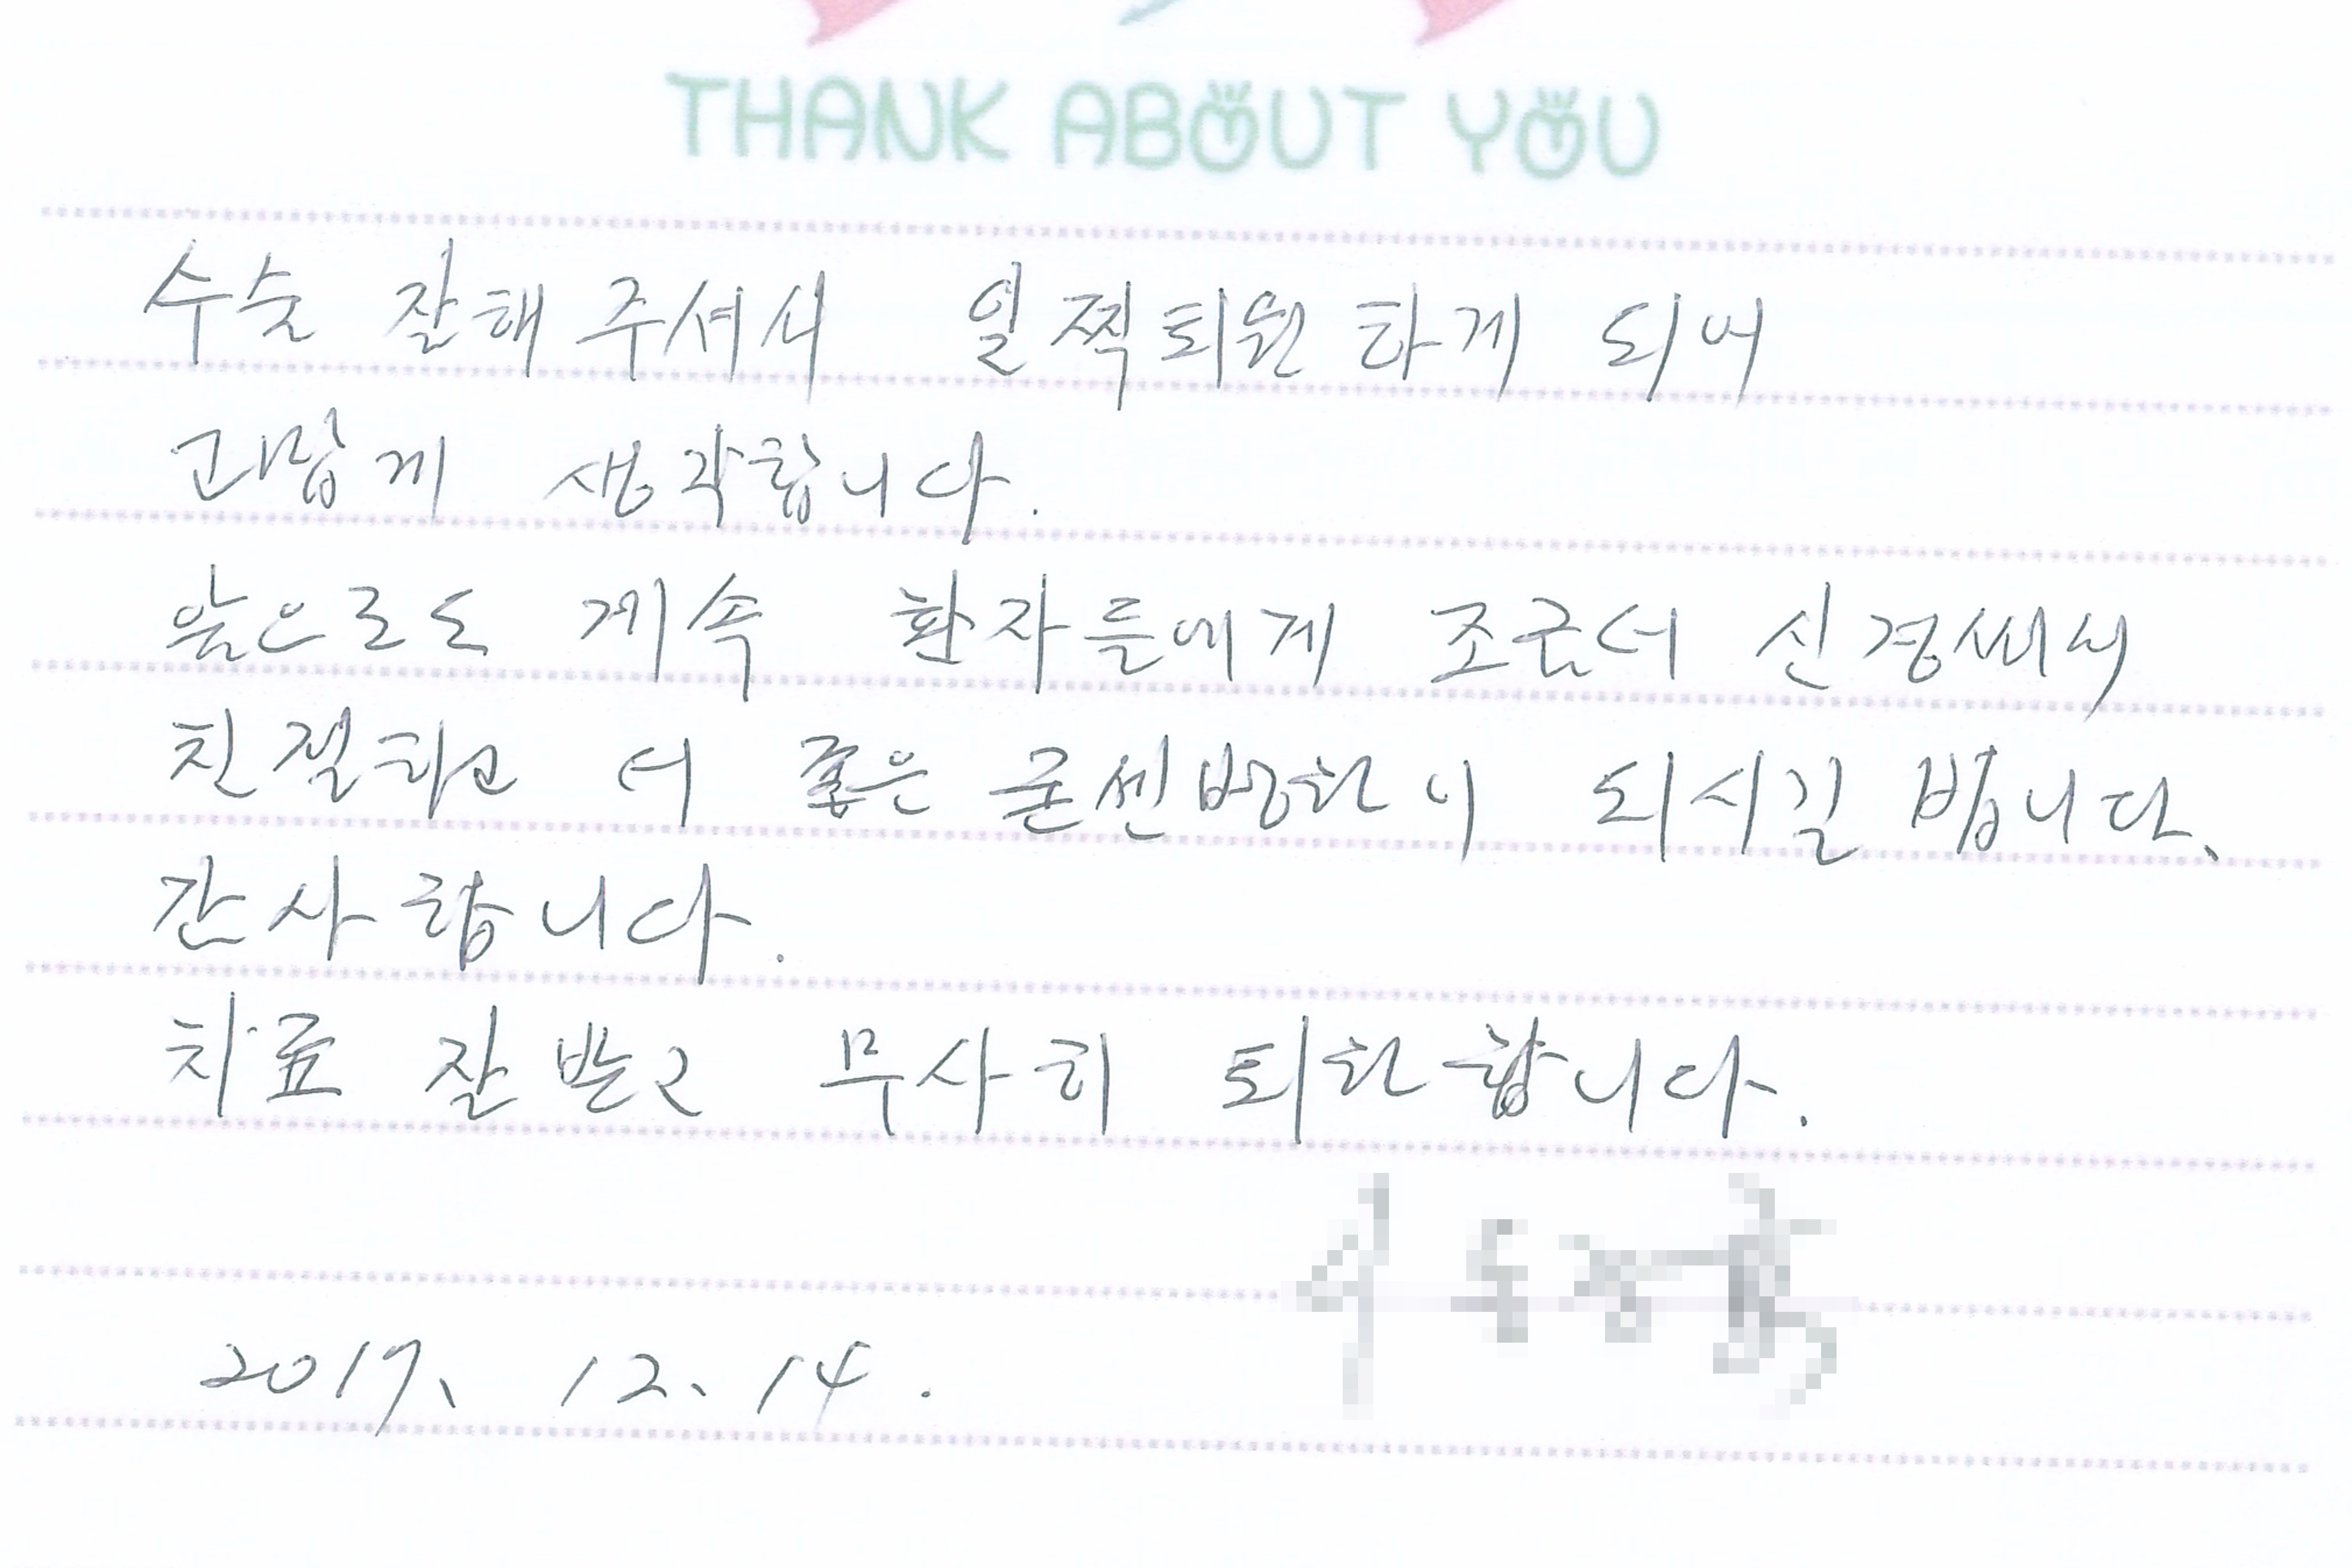 THANK ABOUT YOU
수술 잘해 주셔서 일찍퇴원 하게 되어
고맙게 생각합니다.
앞으로도 계속 환자들에게 조금더 신경써서
친절하고 더 좋은 굳센병원이 되시길 빕니다.
감사 합니다.
치료 잘 받고 무사히 퇴원합니다.
2019. 12. 14.